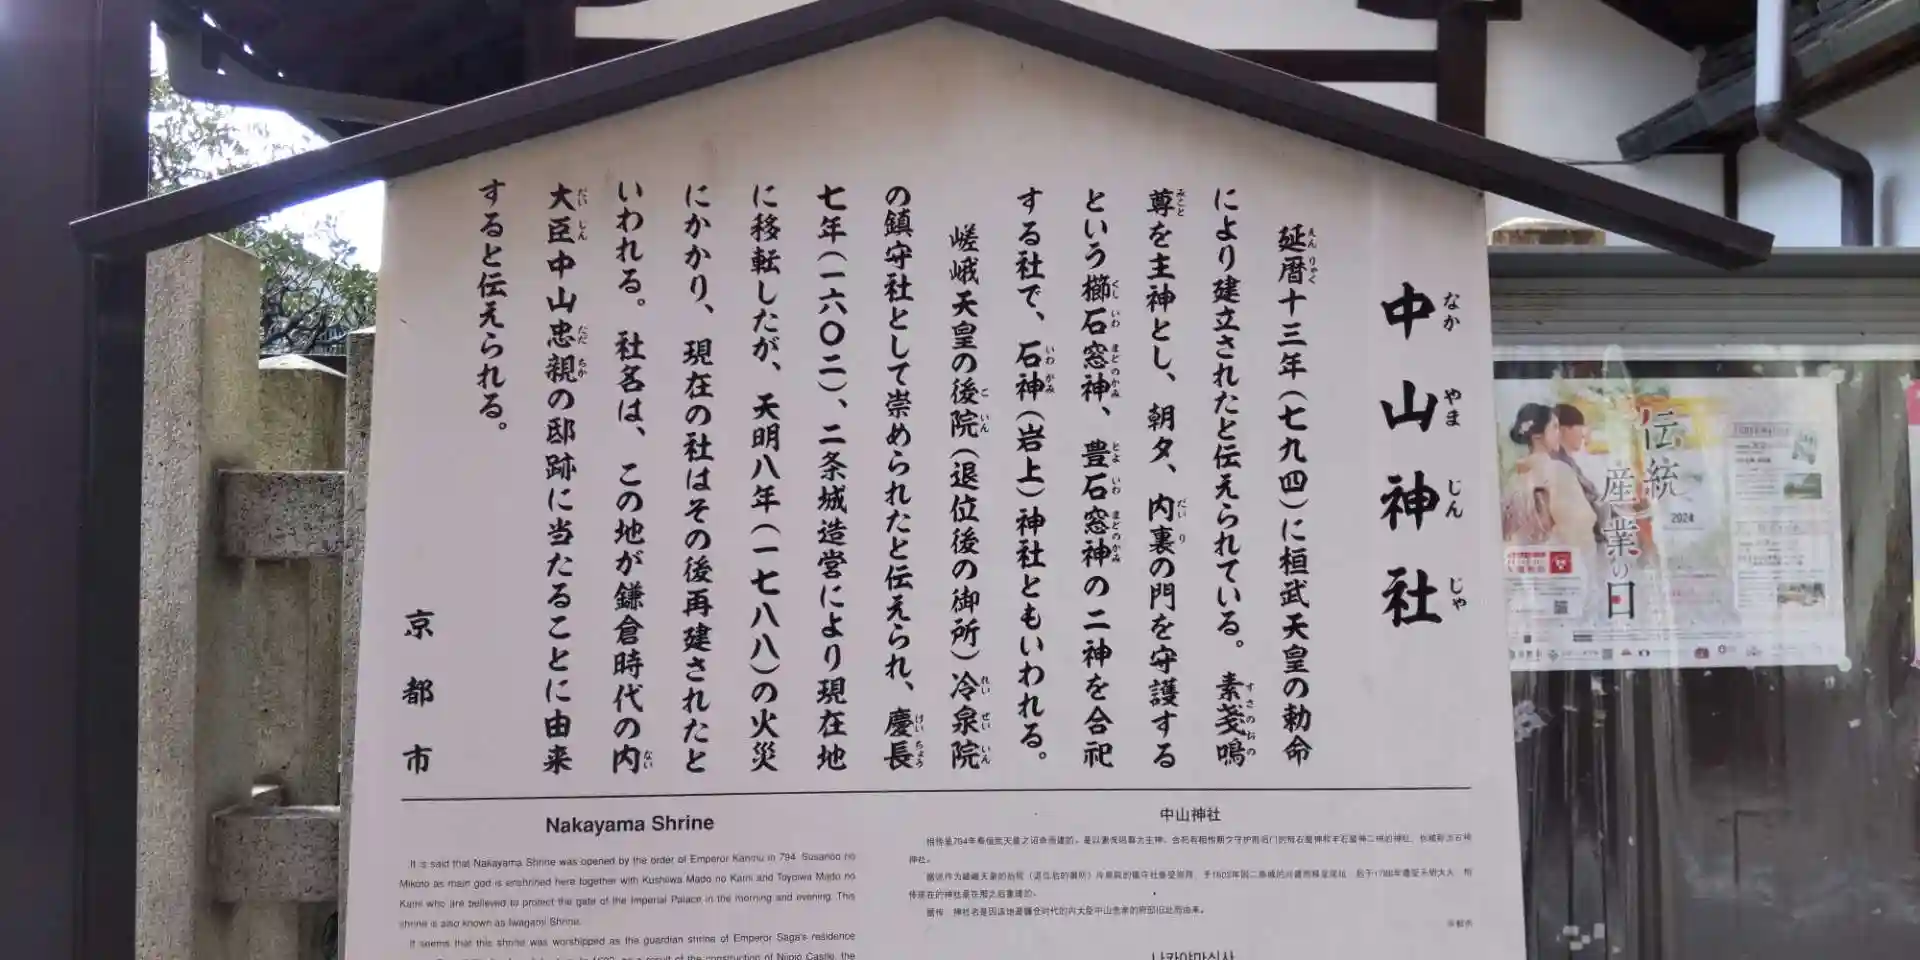 中山神社
なか やま じん じゃ
延暦十三年(七九四)に桓武天皇の勅命
により建立されたと伝えられている。素戔嗚
尊を主神とし、朝夕、内裏の門を守護する
という櫛石窓神、豊石窓神の二神を合祀
する社で、石神(岩上)神社ともいわれる。
嵯峨天皇の後院(退位後の御所)冷泉院
の鎮守社として崇められたと伝えられ、慶長
七年(一六〇二)、二条城造営により現在地
に移転したが、天明八年(一七八八)の火災
にかかり、現在の社はその後再建されたと
いわれる。社名は、この地が鎌倉時代の内
大臣中山忠親の邸跡に当たることに由来
すると伝えられる。
京都市
Nakayama Shrine
It is said that Nakayama Shrine was opened by the order of Emperor Kanmu in 794. Susanoo no
Mikoto as main god is enshrined here together with Kushiiwa Mado no Kami and Toyoiwa Mado no
Kami who are believed to protect the gate of the Imperial Palace in the morning and evening. This
shrine is also known as Iwagami Shrine.
It seems that this shrine was worshipped as the guardian shrine of Emperor Saga's residence
as a result of the construction of Nijo Castle, the
中山神社
京都市
나카야마신사
伝統
産業の日
2024